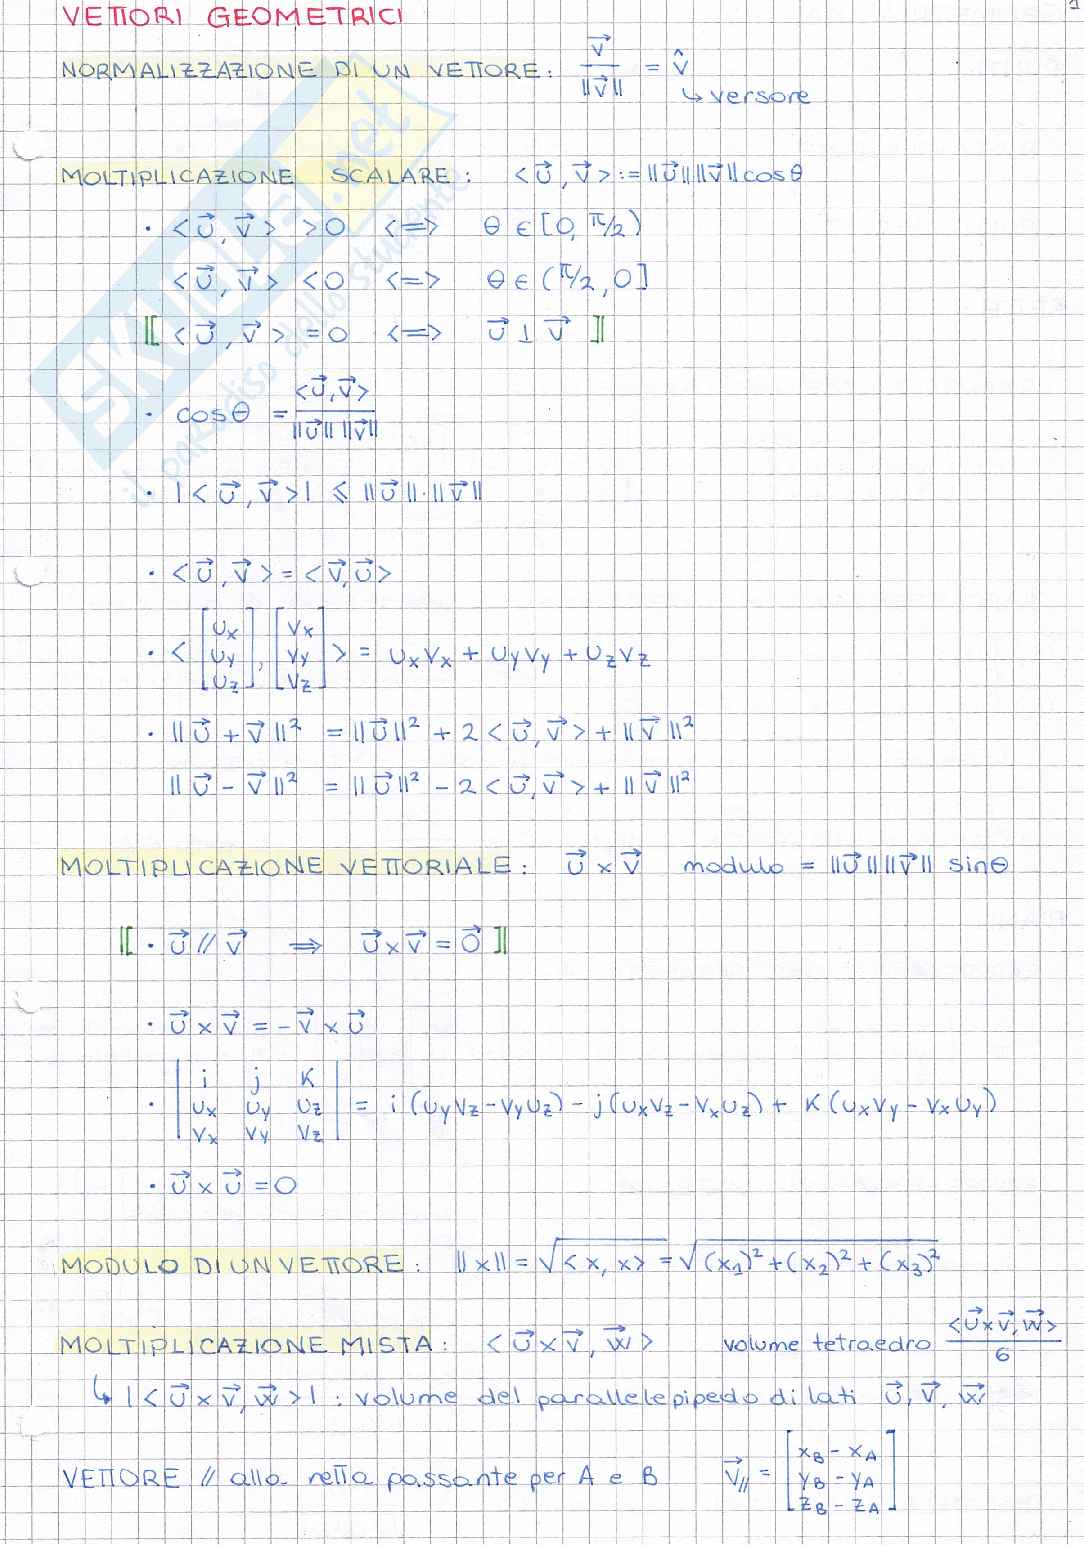 1
VETTORI GEOMETRICI
NORMALIZZAZIONE DI UN VETTORE: \frac{\vec{v}}{||\vec{v}||} = \hat{v}
↳ versore
MOLTIPLICAZIONE SCALARE: <\vec{u}, \vec{v}> := ||\vec{u}|| ||\vec{v}|| cosθ
• <\vec{u}, \vec{v}> > 0 <=> θ ∈ [0, π/2)
<\vec{u}, \vec{v}> < 0 <=> θ ∈ (π/2, 0]
[[ <\vec{u}, \vec{v}> = 0 <=> \vec{u} ⊥ \vec{v} ]]
• cosθ = \frac{<\vec{u}, \vec{v}>}{||\vec{u}|| ||\vec{v}||}
• |<\vec{u}, \vec{v}>| ≤ ||\vec{u}|| · ||\vec{v}||
• <\vec{u}, \vec{v}> = <\vec{v}, \vec{u}>
• <[u_x u_y u_z], [v_x v_y v_z]> = u_x v_x + u_y v_y + u_z v_z
• ||\vec{u} + \vec{v}||² = ||\vec{u}||² + 2<\vec{u}, \vec{v}> + ||\vec{v}||²
||\vec{u} - \vec{v}||² = ||\vec{u}||² - 2<\vec{u}, \vec{v}> + ||\vec{v}||²
MOLTIPLICAZIONE VETTORIALE: \vec{u} × \vec{v} modulo = ||\vec{u}|| ||\vec{v}|| sinθ
[[ • \vec{u} // \vec{v} => \vec{u} × \vec{v} = \vec{0} ]]
• \vec{u} × \vec{v} = -\vec{v} × \vec{u}
• |i j k; u_x u_y u_z; v_x v_y v_z| = i(u_y v_z - v_y u_z) - j(u_x v_z - v_x u_z) + k(u_x v_y - v_x u_y)
• \vec{u} × \vec{u} = 0
MODULO DI UN VETTORE: ||x|| = √<x, x> = √(x_1)² + (x_2)² + (x_3)²
MOLTIPLICAZIONE MISTA: <\vec{u} × \vec{v}, \vec{w}> volume tetraedro \frac{<\vec{u} × \vec{v}, \vec{w}>}{6}
↳ |<\vec{u} × \vec{v}, \vec{w}>| : volume del parallelepipedo di lati \vec{u}, \vec{v}, \vec{w}
VETTORE // alla retta passante per A e B \vec{v}_{//} = [x_B - x_A; y_B - y_A; z_B - z_A]
SKUOLA.net
il paradiso dello studente